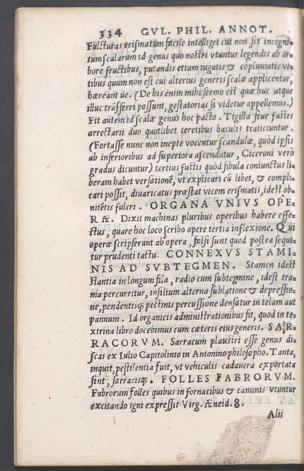 334 GVL. PHIL. ANNOT.
Fulcturas erismatum facile intelliget cui non sit incogni-
tum scalarum id genus quo nostri vtuntur legendis ab ar-
bore fructibus, putandis etiam iugatis & copluuiatis vi-
tibus quum non est cui alterius generis scalæ applicentur,
hæreant ue. (De his enim mihi sermo est quæ huc atque
illuc trāsferri possunt, gestatorias si videtur appellemus.)
Fit autem id scalæ genus hoc pacto. Tigilla siue fustes
arrectarii duo quotlibet teretibus baculis traiiciuntur.
(Fortasse nunc non inepte vocentur scandulæ, quòd ipsis
ab inferioribus ad superiora ascendatur, Ciceroni verò
gradus dicuntur) tertius fustis quòd fibula coniunctus li-
beram habet versationē, vt explicari cū libet, & compli-
cari possit, diuaricatus præstat vicem erismatis, idest ob-
nitētis fulcri. ORGANA VNIVS OPE-
RÆ. Dixit machinas pluribus operibus habere effe-
ctus, quare hoc loco scribo opere tertia inflexione. Qui
operæ scripserunt ab opera, falsi sunt quod postea sequi-
tur prudenti tactu. CONNEXVS STAMI-
NIS AD SVBTEGMEN. Stamen idest
stantia in longum fila, radio cum subtegmine, idest tra-
ma percurritur, insilium alterna sublatione & depressio-
ne, pendentisq; pectinis percussione densātur in telam aut
pannum. Id organicis administrationibus fit, quod in te-
xtrina libro docebimus cum cæteris eius generis. SAR-
RACORVM. Sarracum plaustri esse genus di-
scas ex Iulio Capitolino in Antonino philosopho. Tanta,
inquit, pestilentia fuit, vt vehiculis cadauera exportata
sint, sarracisq;. FOLLES FABRORVM.
Fabrorum folles quibus in fornacibus & caminis vtuntur
excitando igni expressit Virg. Æneid. 8.
Alii